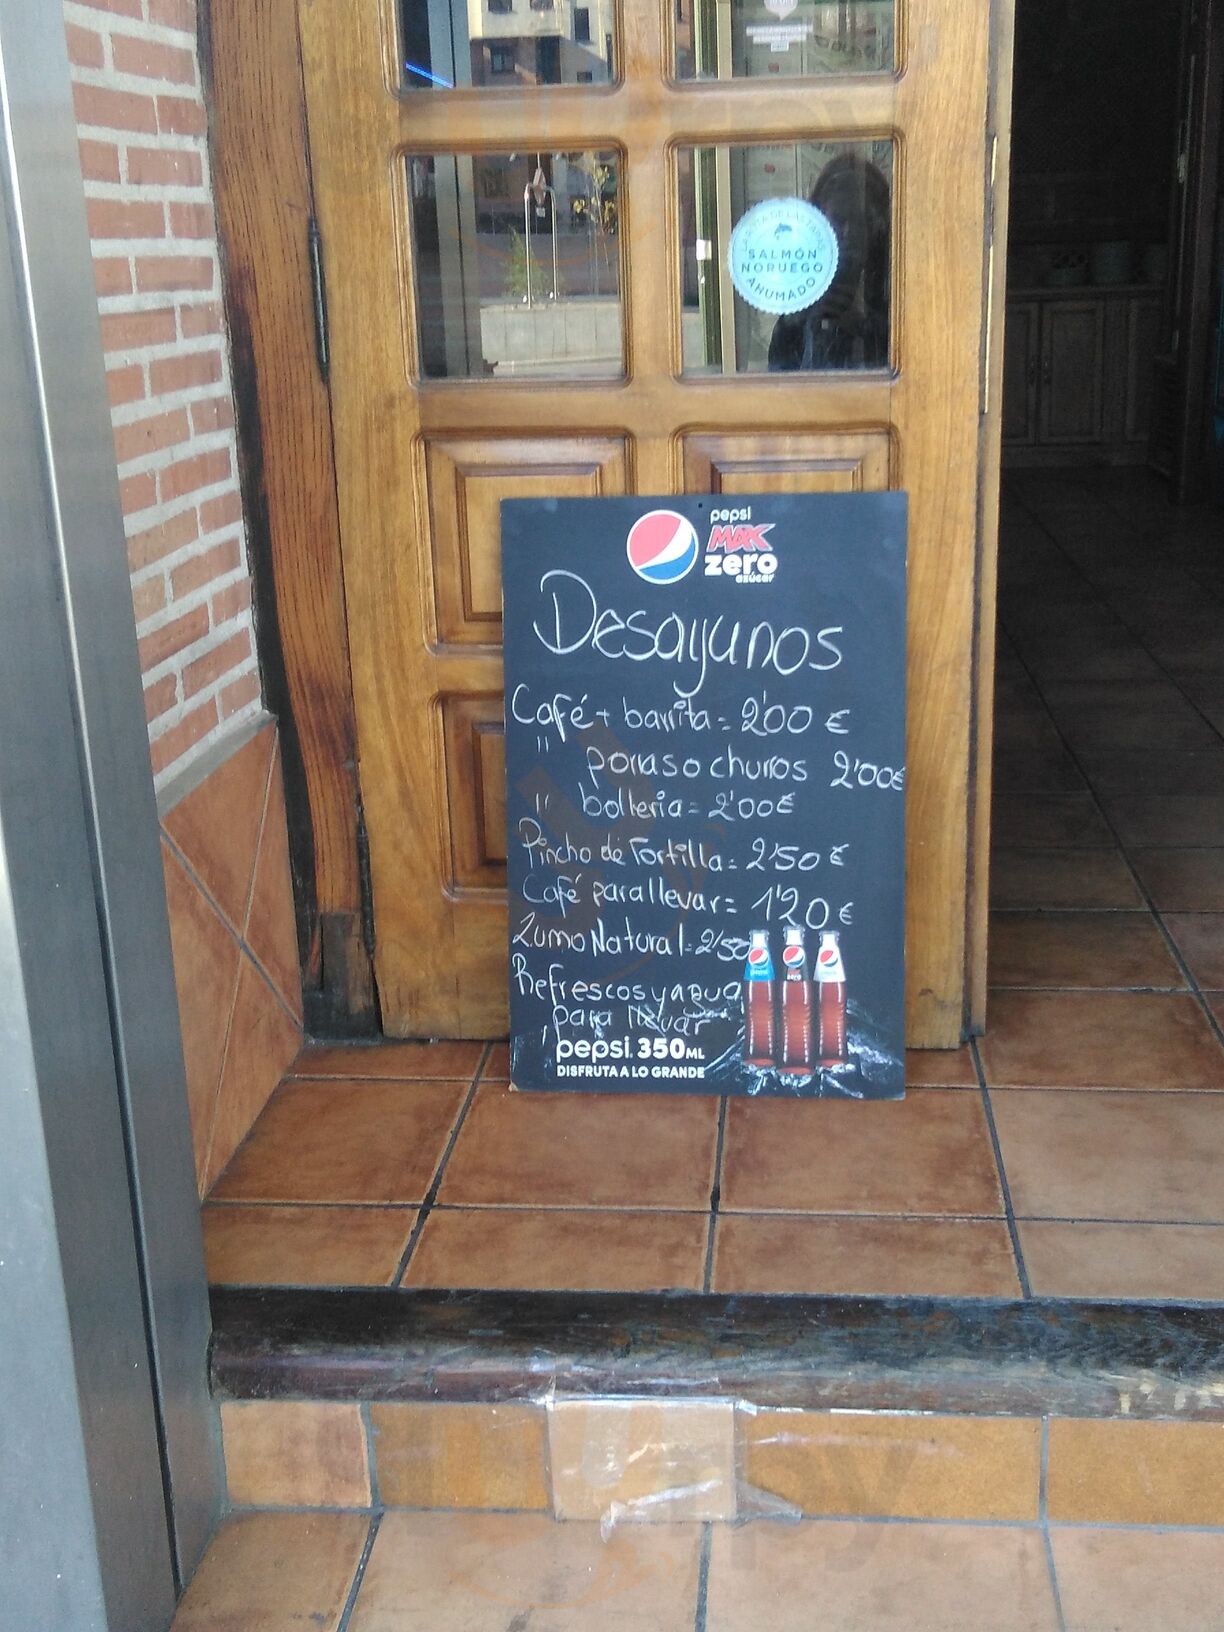 LA RUTA DE LAS TAPAS
SALMÓN
NORUEGO
AHUMADO
pepsi
MAX
zero
azúcar
Desayunos
Café + barrita = 2'00 €
" porras o churros 2'00€
" bolleria = 2'00€
Pincho de Tortilla = 2'50 €
Café para llevar = 1'20 €
Zumo Natural = 2'50
Refrescos y agua
para llevar
pepsi. 350ML
DISFRUTA A LO GRANDE